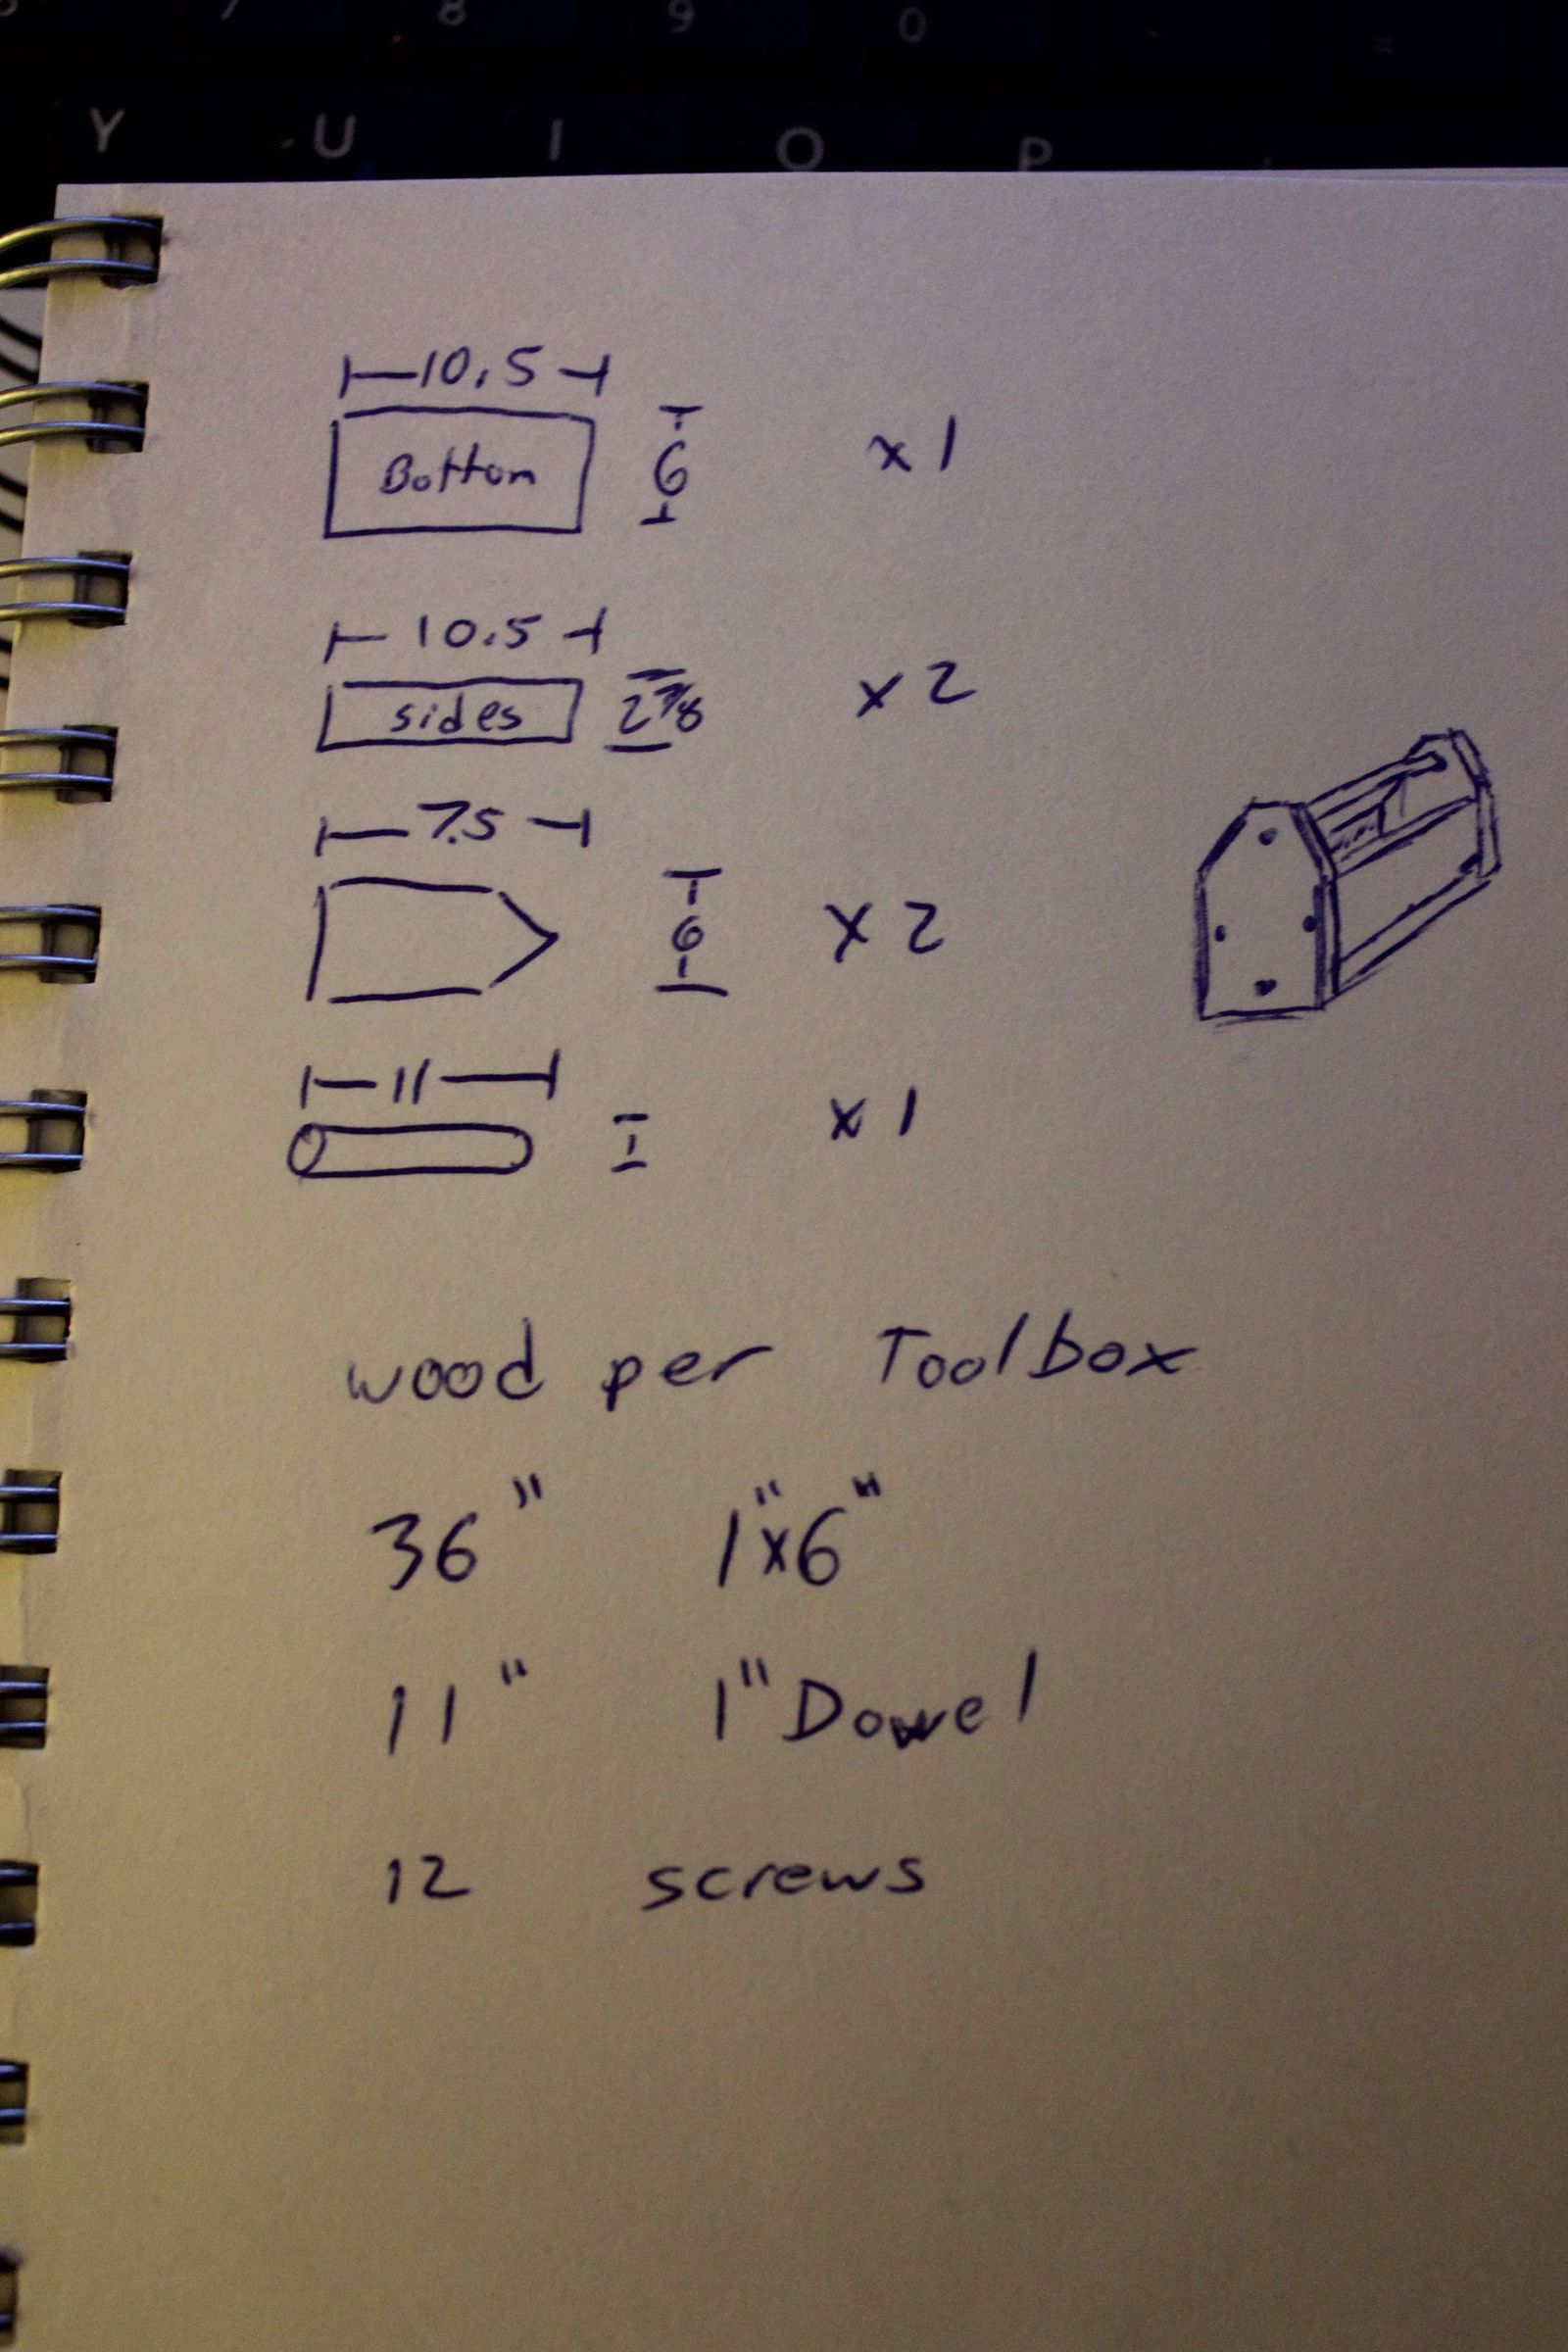 7 8 9 0 - =
Y U I O P
10.5
Bottom 6 x 1
10.5
sides 2 7/8 x 2
7.5
6 x 2
11
1 x 1
wood per Toolbox
36" 1"x6"
11" 1" Dowel
12 screws